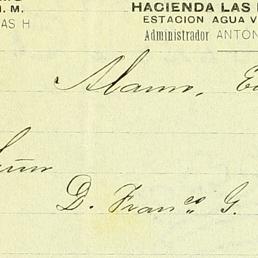 HACIENDA LAS
. M. ESTACION AGUA V
AS H Administrador ANTON
Alamo, E
D. Franco G.